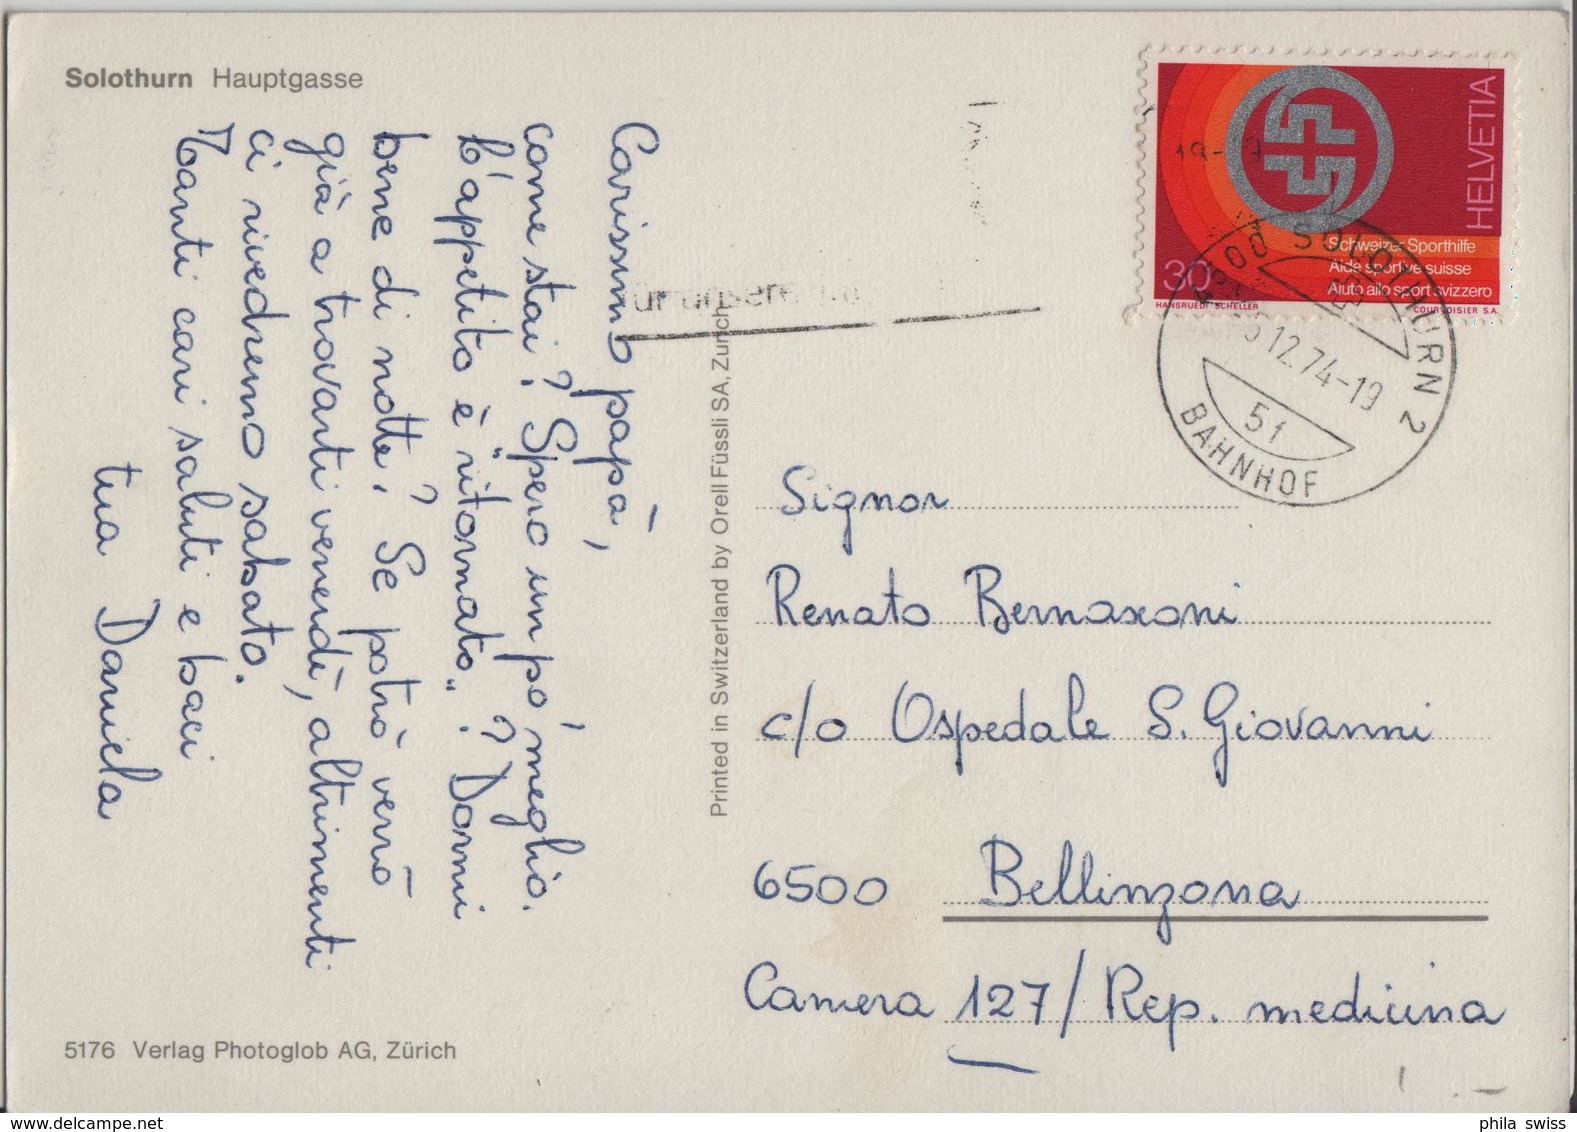 Solothurn Hauptgasse
Carissimo papà,
come stai? Spero un pò meglio.
L'appetito è "ritornato"? Dormi
bene di notte? Se potrò verrò
già a trovarti venerdì, altrimenti
ci rivedremo sabato.
Tanti cari saluti e baci
tua Daniela
5176 Verlag Photoglob AG, Zürich
Printed in Switzerland by Orell Füssli SA, Zürich
für unsere
HELVETIA
Schweizer Sporthilfe
Aide sportive suisse
Aiuto allo sport svizzero
30
HANSRUEDI SCHELLER COURVOISIER S.A.
4500 SOLOTHURN 2
12.74-19
51
BAHNHOF
Signor
Renato Bernasconi
c/o Ospedale S. Giovanni
6500 Bellinzona
Camera 127/Rep. medicina
phila swiss